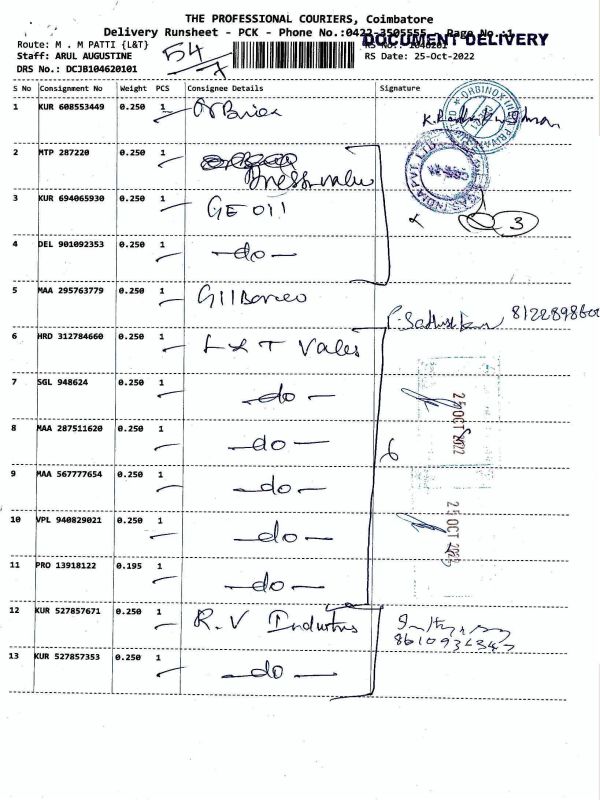 THE PROFESSIONAL COURIERS, Coimbatore
Delivery Runsheet - PCK - Phone No.:0422-3505555 Page No.:1
DOCUMENT DELIVERY
Route: M . M PATTI {L&T}
Staff: ARUL AUGUSTINE
RS Date: 25-Oct-2022
DRS No.: DCJB104620101
54
S No Consignment No Weight PCS Consignee Details Signature
1 KUR 608553449 0.250 1
2 MTP 287220 0.250 1
3 KUR 694065930 0.250 1 GE Oil
3
4 DEL 901092353 0.250 1 -do-
5 MAA 295763779 0.250 1
6 HRD 312784660 0.250 1 L&T Valves
7 SGL 948624 0.250 1 -do-
25 OCT 2022
8 MAA 287511620 0.250 1 -do- 6
9 MAA 567777654 0.250 1 -do-
10 VPL 940829021 0.250 1 -do-
25 OCT 2022
11 PRO 13918122 0.195 1 -do-
12 KUR 527857671 0.250 1 R.V Industries
13 KUR 527857353 0.250 1 -do-